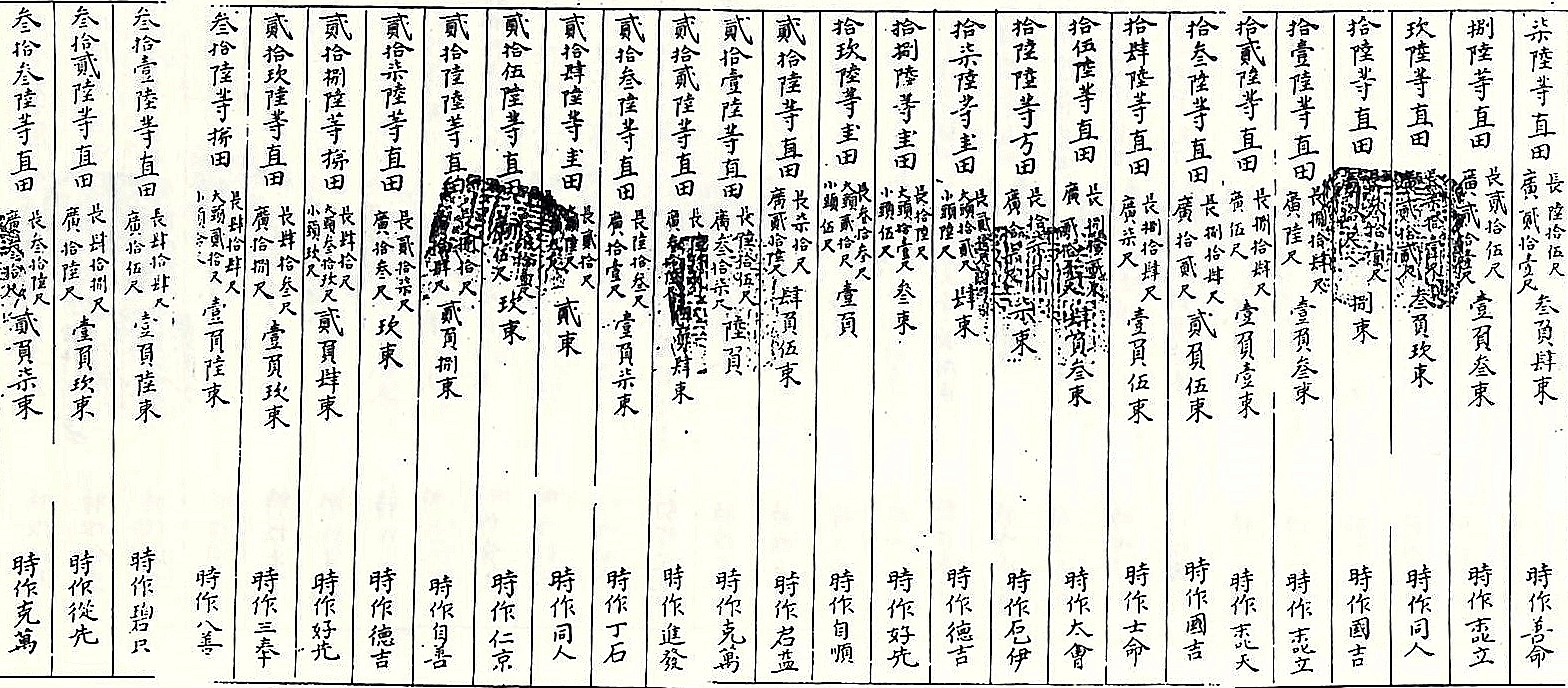 柒陸等直田 長陸拾伍尺 廣貳拾壹尺 叁負肆束 時作善命
捌陸等直田 長貳拾伍尺 廣貳拾壹尺 壹負叁束 時作志立
玖陸等直田 廣貳拾貳尺 叁負玖束 時作同人
拾陸等直田 捌束 時作國吉
拾壹陸等直田 長捌拾肆尺 廣陸尺 壹負叁束 時作志立
拾貳陸等直田 長捌拾肆尺 廣伍尺 壹負壹束 時作志天
拾叁陸等直田 長捌拾肆尺 廣拾貳尺 貳負伍束 時作國吉
拾肆陸等直田 長捌拾肆尺 廣柒尺 壹負伍束 時作士命
拾伍陸等直田 長捌拾貳尺 廣貳拾壹尺 肆負叁束 時作太會
拾陸陸等方田 長拾柒尺 廣拾柒尺 柒束 時作乭伊
拾柒陸等圭田 大頭拾貳尺 小頭陸尺 肆束 時作德吉
拾捌陸等圭田 長拾陸尺 大頭拾壹尺 小頭伍尺 叁束 時作好先
拾玖陸等圭田 長叁拾叁尺 大頭貳拾尺 小頭伍尺 壹負 時作自順
貳拾陸等直田 長柒拾尺 廣貳拾陸尺 肆負伍束 時作君益
貳拾壹陸等直田 長陸拾伍尺 廣叁拾柒尺 陸負 時作克萬
貳拾貳陸等直田 肆束 時作進發
貳拾叁陸等直田 長陸拾叁尺 廣拾壹尺 壹負柒束 時作丁石
貳拾肆陸等圭田 長貳拾尺 廣陸尺 貳束 時作同人
貳拾伍陸等直田 廣伍尺 玖束 時作仁京
貳拾陸陸等直田 長捌拾尺 廣拾肆尺 貳負捌束 時作自善
貳拾柒陸等直田 長貳拾柒尺 廣拾叁尺 玖束 時作德吉
貳拾捌陸等梯田 長肆拾尺 大頭叁拾玖尺 小頭玖尺 貳負肆束 時作好先
貳拾玖陸等直田 長肆拾叁尺 廣拾捌尺 壹負玖束 時作三奉
叁拾陸等梯田 長肆拾肆尺 大頭貳拾尺 小頭拾尺 壹負陸束 時作八善
叁拾壹陸等直田 長肆拾肆尺 廣拾伍尺 壹負陸束 時作碧只
叁拾貳陸等直田 長肆拾捌尺 廣拾陸尺 壹負玖束 時作從先
叁拾叁陸等直田 長叁拾陸尺 廣叁拾尺 貳負柒束 時作克萬